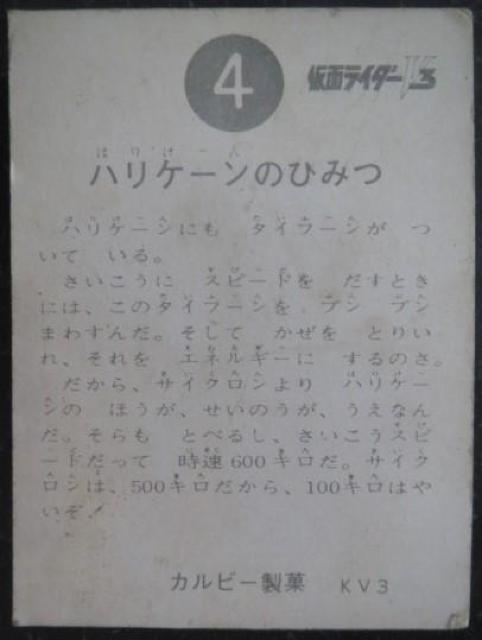 4
仮面ライダーV3
はりけーん
ハリケーンのひみつ
ハリケーンにも タイフーンが つ
いて いる。
さいこうに スピードを だすとき
には、このタイフーンを ブン ブン
まわすんだ。そして かぜを とりい
れ、それを エネルギーに するのさ。
だから、サイクロンより ハリケー
ンの ほうが、せいのうが、うえなん
だ。そらも とべるし、さいこうスピ
ードだって 時速600キロだ。サイク
ロンは、500キロだから、100キロはや
いぞ!
カルビー製菓 KV3